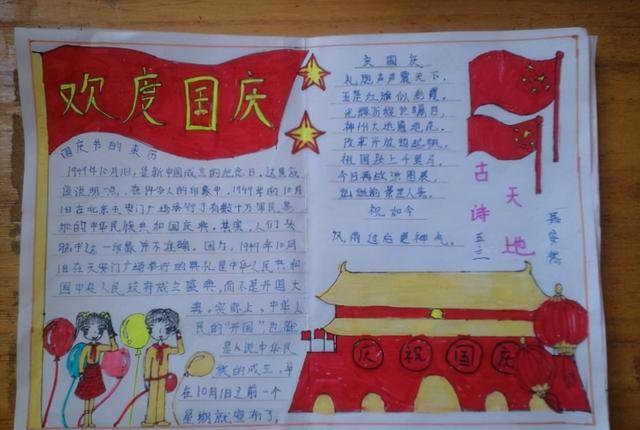 欢度国庆
国庆节的来历
1949年10月1日,是新中国成立的纪念日。这里应
该说明一点,在许多人的印象中,1949年的10月
1日在北京天安门广场举行了有数十万军民参
加的中华民族共和国庆典。其实,人们头
脑中这一印象并不准确。因为,1949年10月
1日在天安门广场举行的典礼是中华人民共和
国中央人民政府成立盛典,而不是开国大
典。实际上,中华人
民的"开国",也就
是说中华民
族的成立,早
在10月1日之前一个
星期就宣布了。
庆国庆
礼炮声声震天下,
五星红旗似彩霞。
改革开放
祖国跃上千里马。
今日再放
祝如今
风雨过后更神气。
古诗
天地
五三
庆祝国庆